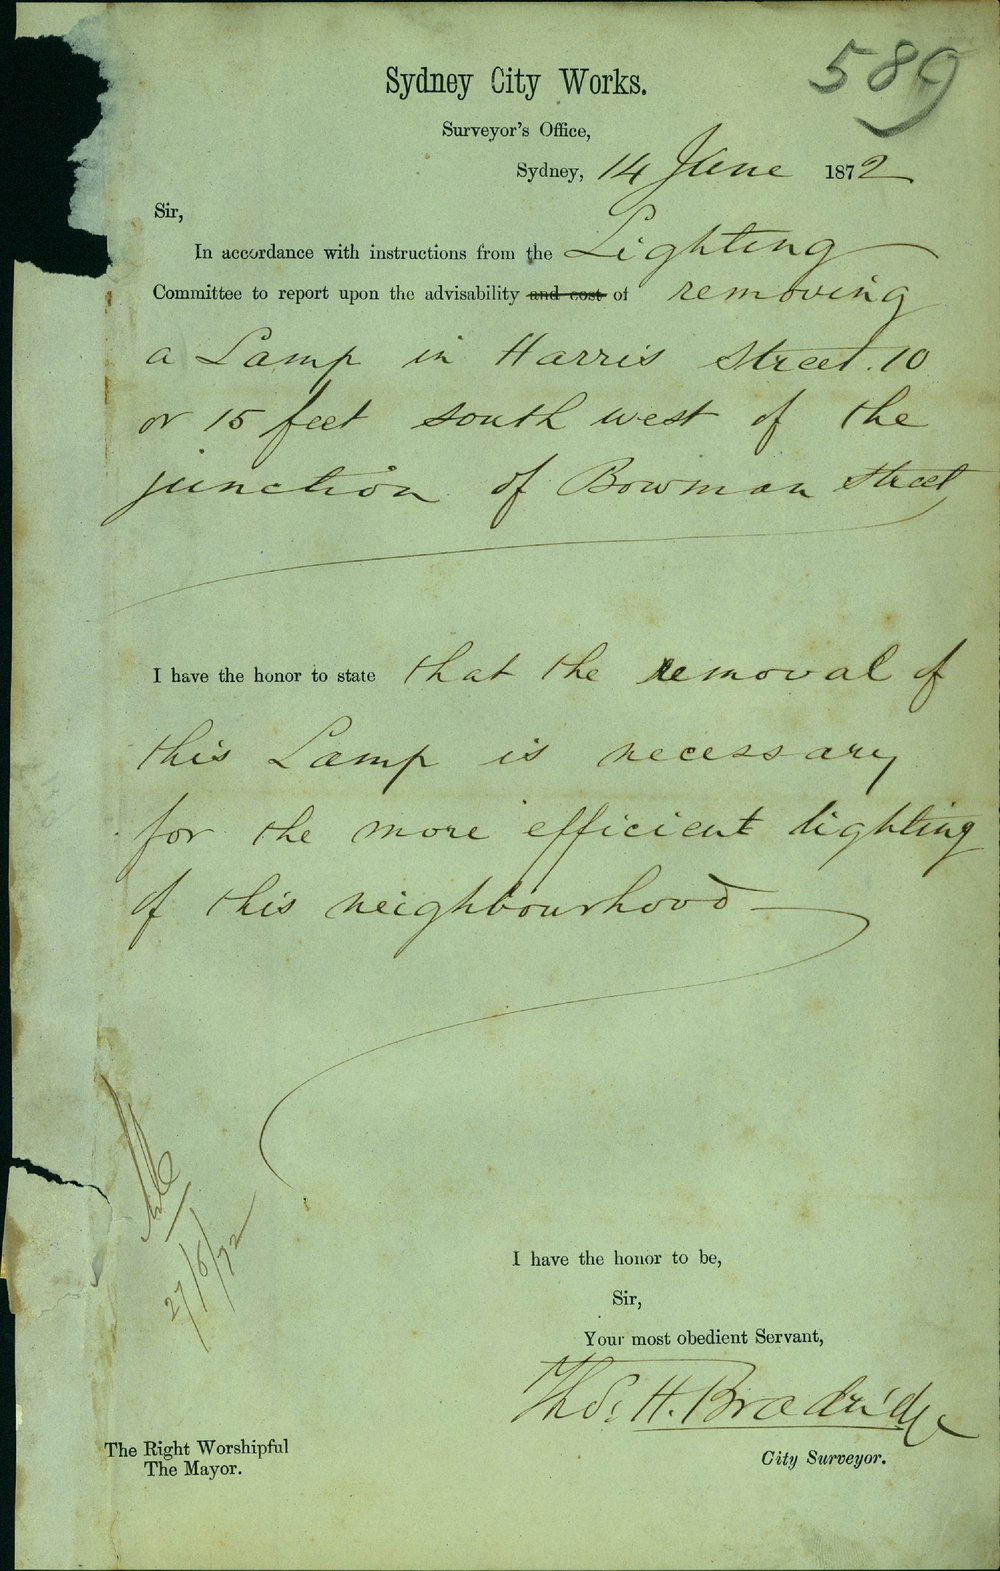 589
Sydney City Works.
Surveyor's Office,
Sydney, 14 June 1872
Sir,
In accordance with instructions from the Lighting
Committee to report upon the advisability and cost of removing
a Lamp in Harris Street. 10
or 15 feet south west of the
junction of Bowman Street
I have the honor to state that the removal of
this Lamp is necessary
for the more efficient lighting
of this neighbourhood
27/6/72
I have the honor to be,
Sir,
Your most obedient Servant,
Thos. H. Bradridge
City Surveyor.
The Right Worshipful
The Mayor.